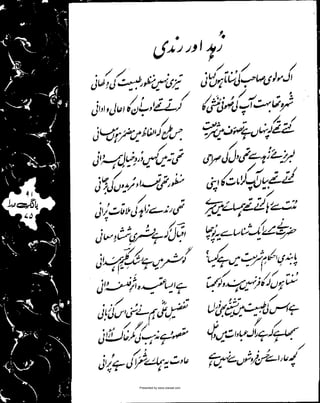 زُہد اور رندی
اک مولوی صاحب کی سُناتا ہوں کہانی تیزی نہیں منظور طبیعت کی دِکھانی
شُہرہ تھا بہت آپ کی صُوفی مَنشی کا کرتے تھے ادب اُن کا اعالی و ادانی
کہتے تھے کہ پنہاں ہے تصوّف میں شریعت جس طرح کہ الفاظ میں مضمَر ہوں معانی
لبریز مئے زُہد سے تھی دل کی صراحی تھی تہ میں کہیں دُردِ خیالِ ہمہ دانی
کرتے تھے بیاں آپ کرامات کا اپنی منظور تھی تعداد مریدوں کی بڑھانی
مُدّت سے رہا کرتے تھے ہمسائے میں میرے تھی رند سے زاہد کی ملاقات پُرانی
حضرت نے مرے ایک شناسا سے یہ پُوچھا اقبال، کہ ہے قُمریِ شمشادِ معانی
پابندیِ احکامِ شریعت میں ہے کیسا؟ گو شعر میں ہے رشکِ کلیمِ ہمَدانی
سُنتا ہوں کہ کافر نہیں ہندو کو سمجھتا ہے ایسا عقیدہ اثرِ فلسفہ دانی
ہے اس کی طبیعت میں تشیّع بھی ذرا سا تفضیلِ علیؓ ہم نے سُنی اس کی زبانی
سمجھا ہے کہ ہے راگ عبادات میں داخل مقصود ہے مذہب کی مگر خاک اُڑانی
کچھ عار اسے حُسن فروشوں سے نہیں ہے عادت یہ ہمارے شعرا کی ہے پُرانی
بانگِ درا
۷۵
Presented by www.ziaraat.com